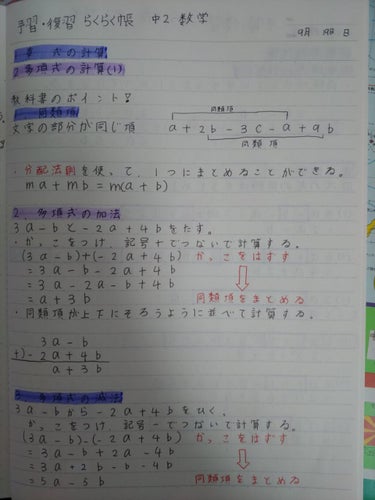 予習・復習 らくらく帳 中2 数学
9月 19日 日
1 章 式の計算
2 多項式の計算(1)
教科書のポイント!
同類項
文字の部分が同じ項
同類項
a+2b-3c-a+9b
同類項
・分配法則を使って、1つにまとめることができる。
ma+mb=m(a+b)
2. 多項式の加法
3a-bと-2a+4bをたす。
・かっこをつけ、記号+でつないで計算する。
(3a-b)+(-2a+4b) かっこをはずす
=3a-b-2a+4b
=3a-2a-b+4b
=a+3b 同類項をまとめる
・同類項が上下にそろうように並べて計算する。
3a-b
+)-2a+4b
a+3b
3. 多項式の減法
3a-bから-2a+4bをひく。
かっこをつけ、記号-でつないで計算する。
(3a-b)-(-2a+4b) かっこをはずす
=3a-b+2a-4b
=3a+2b-b-4b
=5a-5b 同類項をまとめる